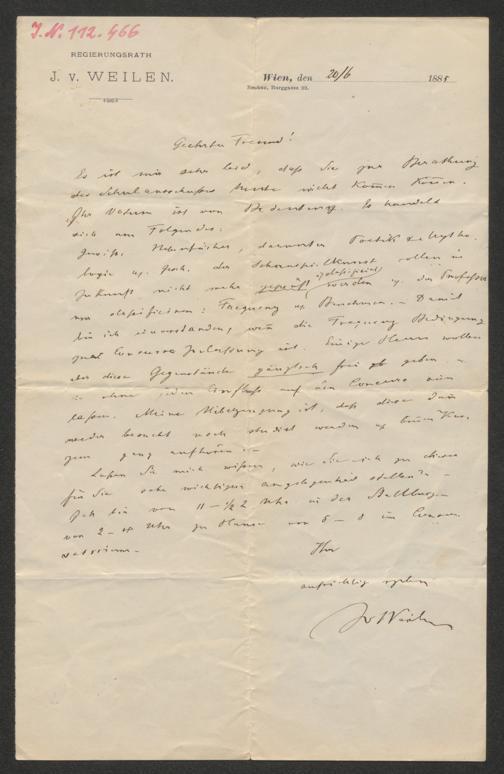 J. N. 112.466
REGIERUNGSRATH
J. v. WEILEN.
Wien, den 20/6 1885
Neubau, Burggasse 22.
Geehrter Freund!
Es ist mir sehr leid, daß Sie zur Berathung
des Schulausschußes heute nicht kommen können.
Ihr Votum ist von Bedeutung. Es handelt
sich um Folgendes:
Gewiße Nebenfächer, darunter Poetik & Mytho-
logie u. Gesch. der Schauspielkunst sollen in
Zukunft nicht mehr geprüft werden u. der Profeßor
nur classificiren: Frequenz u. Benehmen. – Damit
bin ich einverstanden, wenn die Frequenz Bedingung
zum Concurs Zulaßung ist. Einige Herrn wollen
aber diese Gegenstände gänzlich frei geben,
ohne jeden Einfluß auf den Concurs
laßen. Meine Überzeugung ist, daß diese dann
weder besucht noch studirt werden u.
ganz aufhören –
Laßen Sie mich wißen, wie Sie sich zu dieser
für Sie sehr wichtigen Angelegenheit stellen –
Ich bin von 11 – ½ 2 Uhr in der Stallburg
von 2 – 4 Uhr zu Hause von 5 – 8 im Conser-
vatorium –
Ihr
aufrichtig ergebener
J v Weilen